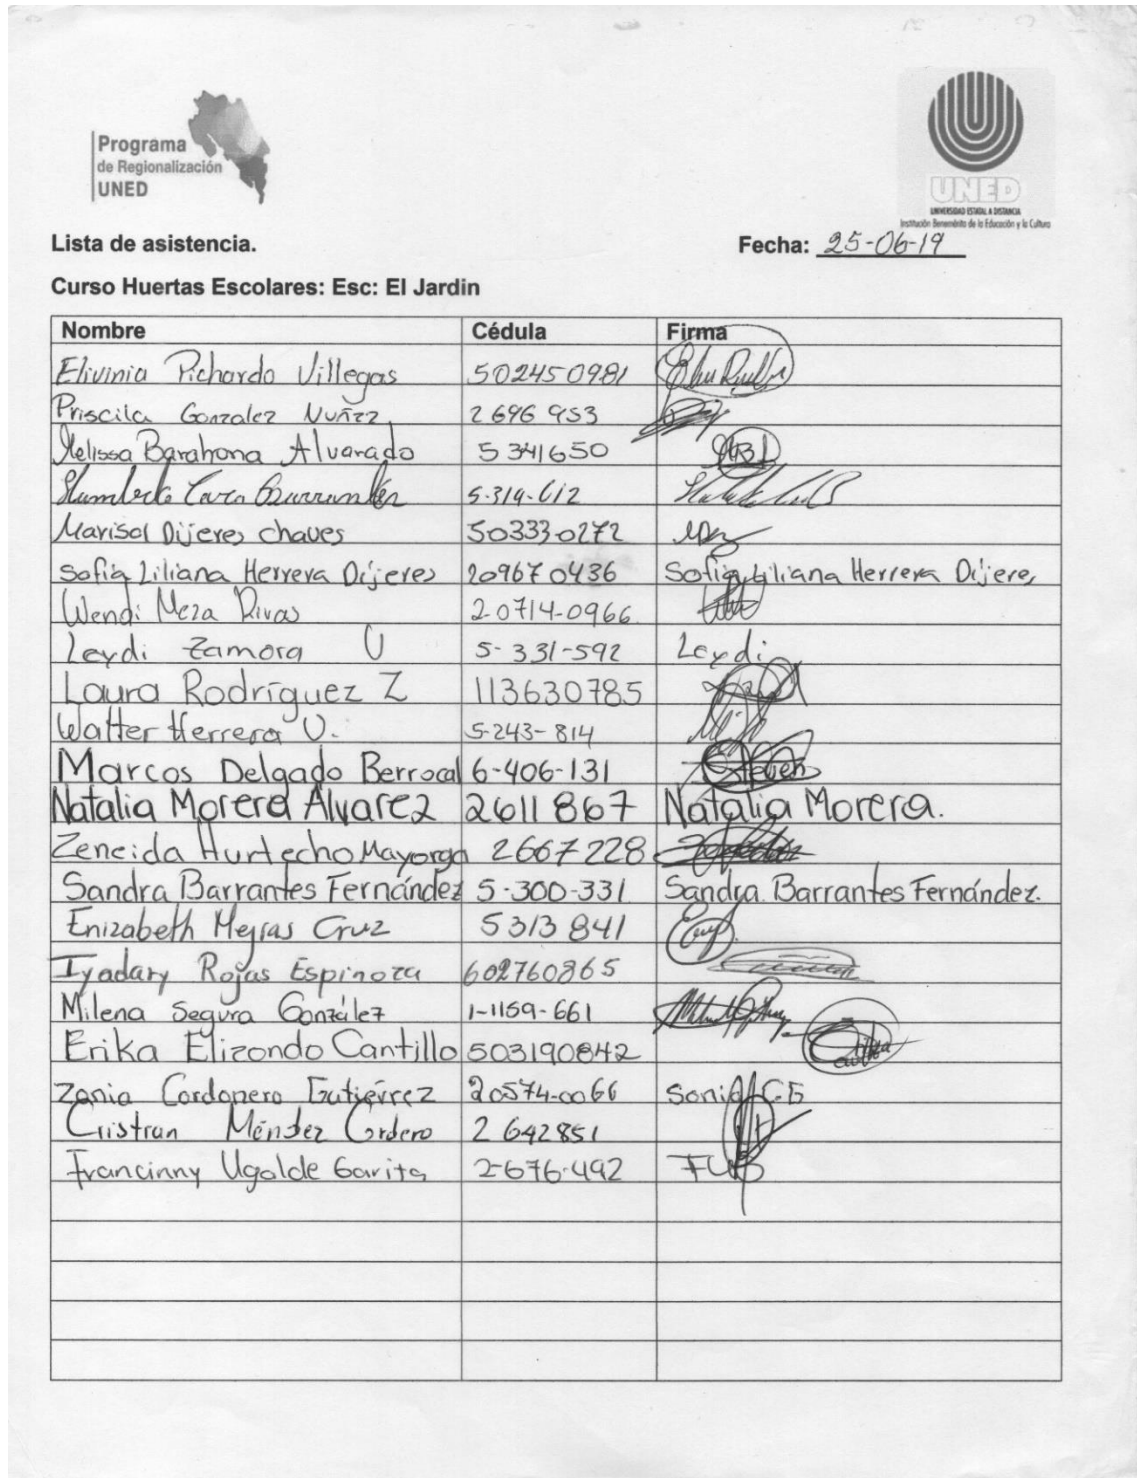 Programa
de Regionalización
UNED
UNED
UNIVERSIDAD ESTATAL A DISTANCIA
Institución Benemérita de la Educación y la Cultura
Lista de asistencia. Fecha: 25-06-19
Curso Huertas Escolares: Esc: El Jardin
Nombre Cédula Firma
Elivinia Pichardo Villegas 502450981
Priscila Gonzalez Nuñez 2 696 953
Melissa Barahona Alvarado 5 341650
Humberto 5-314-612
Marisol Dijeres chaves 503330272
Sofia Liliana Herrera Dijeres 209670436 Sofia Liliana Herrera Dijeres
Wendi Meza Rivas 2-0714-0966
Leydi Zamora U 5-331-592 Leydi
Laura Rodríguez Z 113630785
Walter Herrera V. 5-243-814
Marcos Delgado Berrocal 6-406-131 Steven
Natalia Morera Alvarez 2611867 Natalia Morera.
Zeneida Hurtecho Mayorga 2667228
Sandra Barrantes Fernández 5-300-331 Sandra Barrantes Fernández.
Enizabeth Mejías Cruz 5313841
Iyadary Rojas Espinoza 602760865
Milena Segura González 1-1159-661
Erika Elizondo Cantillo 503190842
Zonia Cordonero Gutiérrez 20574-0066 Sonia CG
Cristian Méndez Cordero 2 642851
Francinny Ugalde Garita 2-676-492 FUG